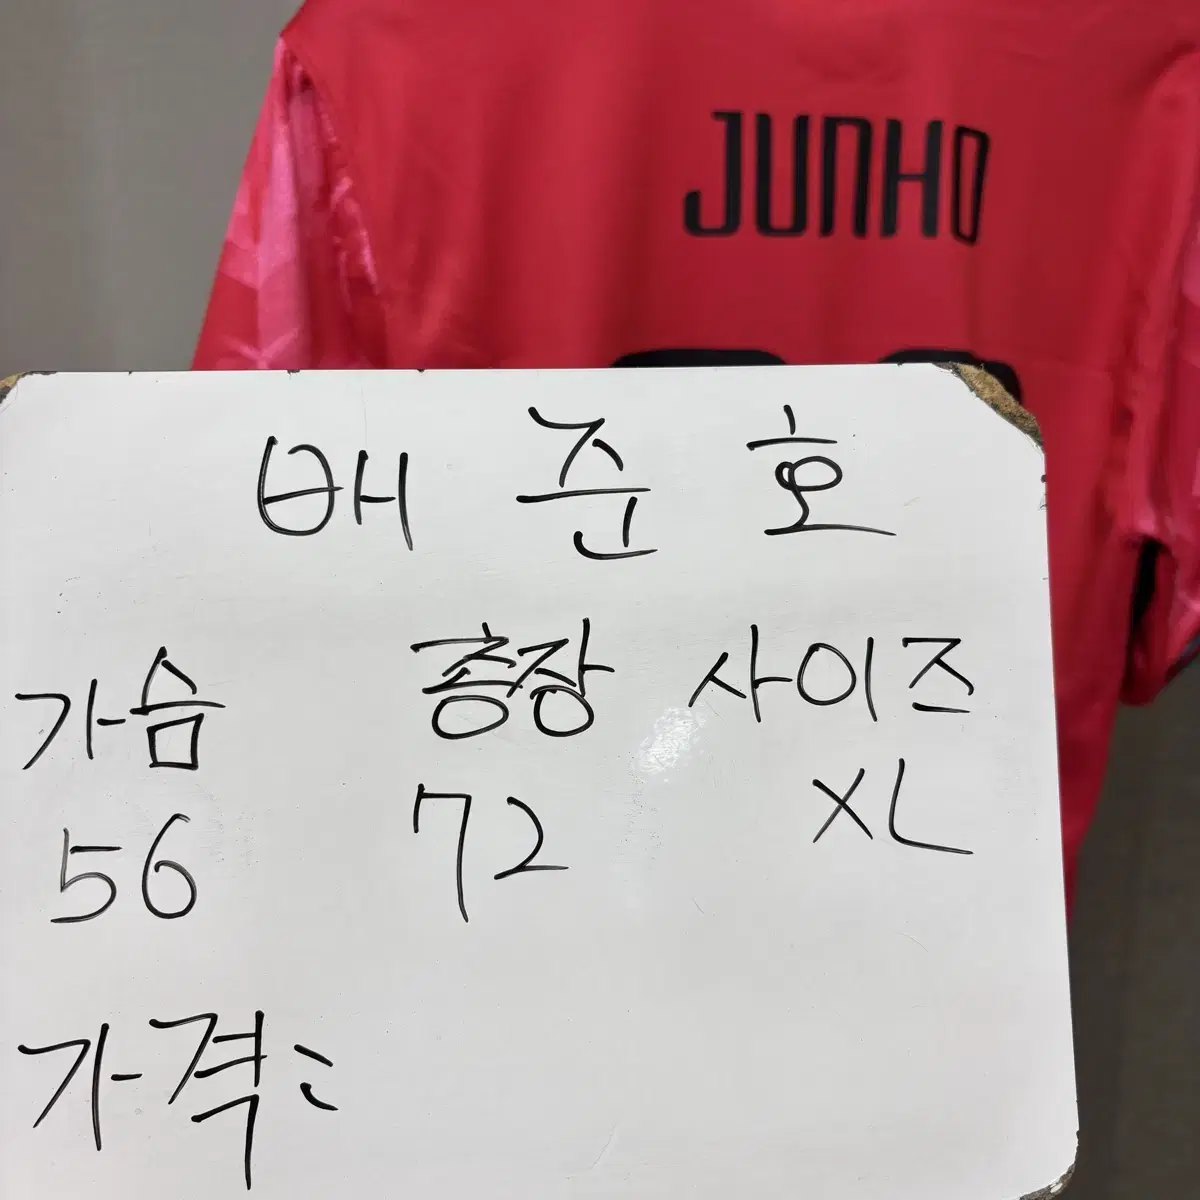 JUNHO
배 준 호
가슴 총장 사이즈
56 72 XL
가격: